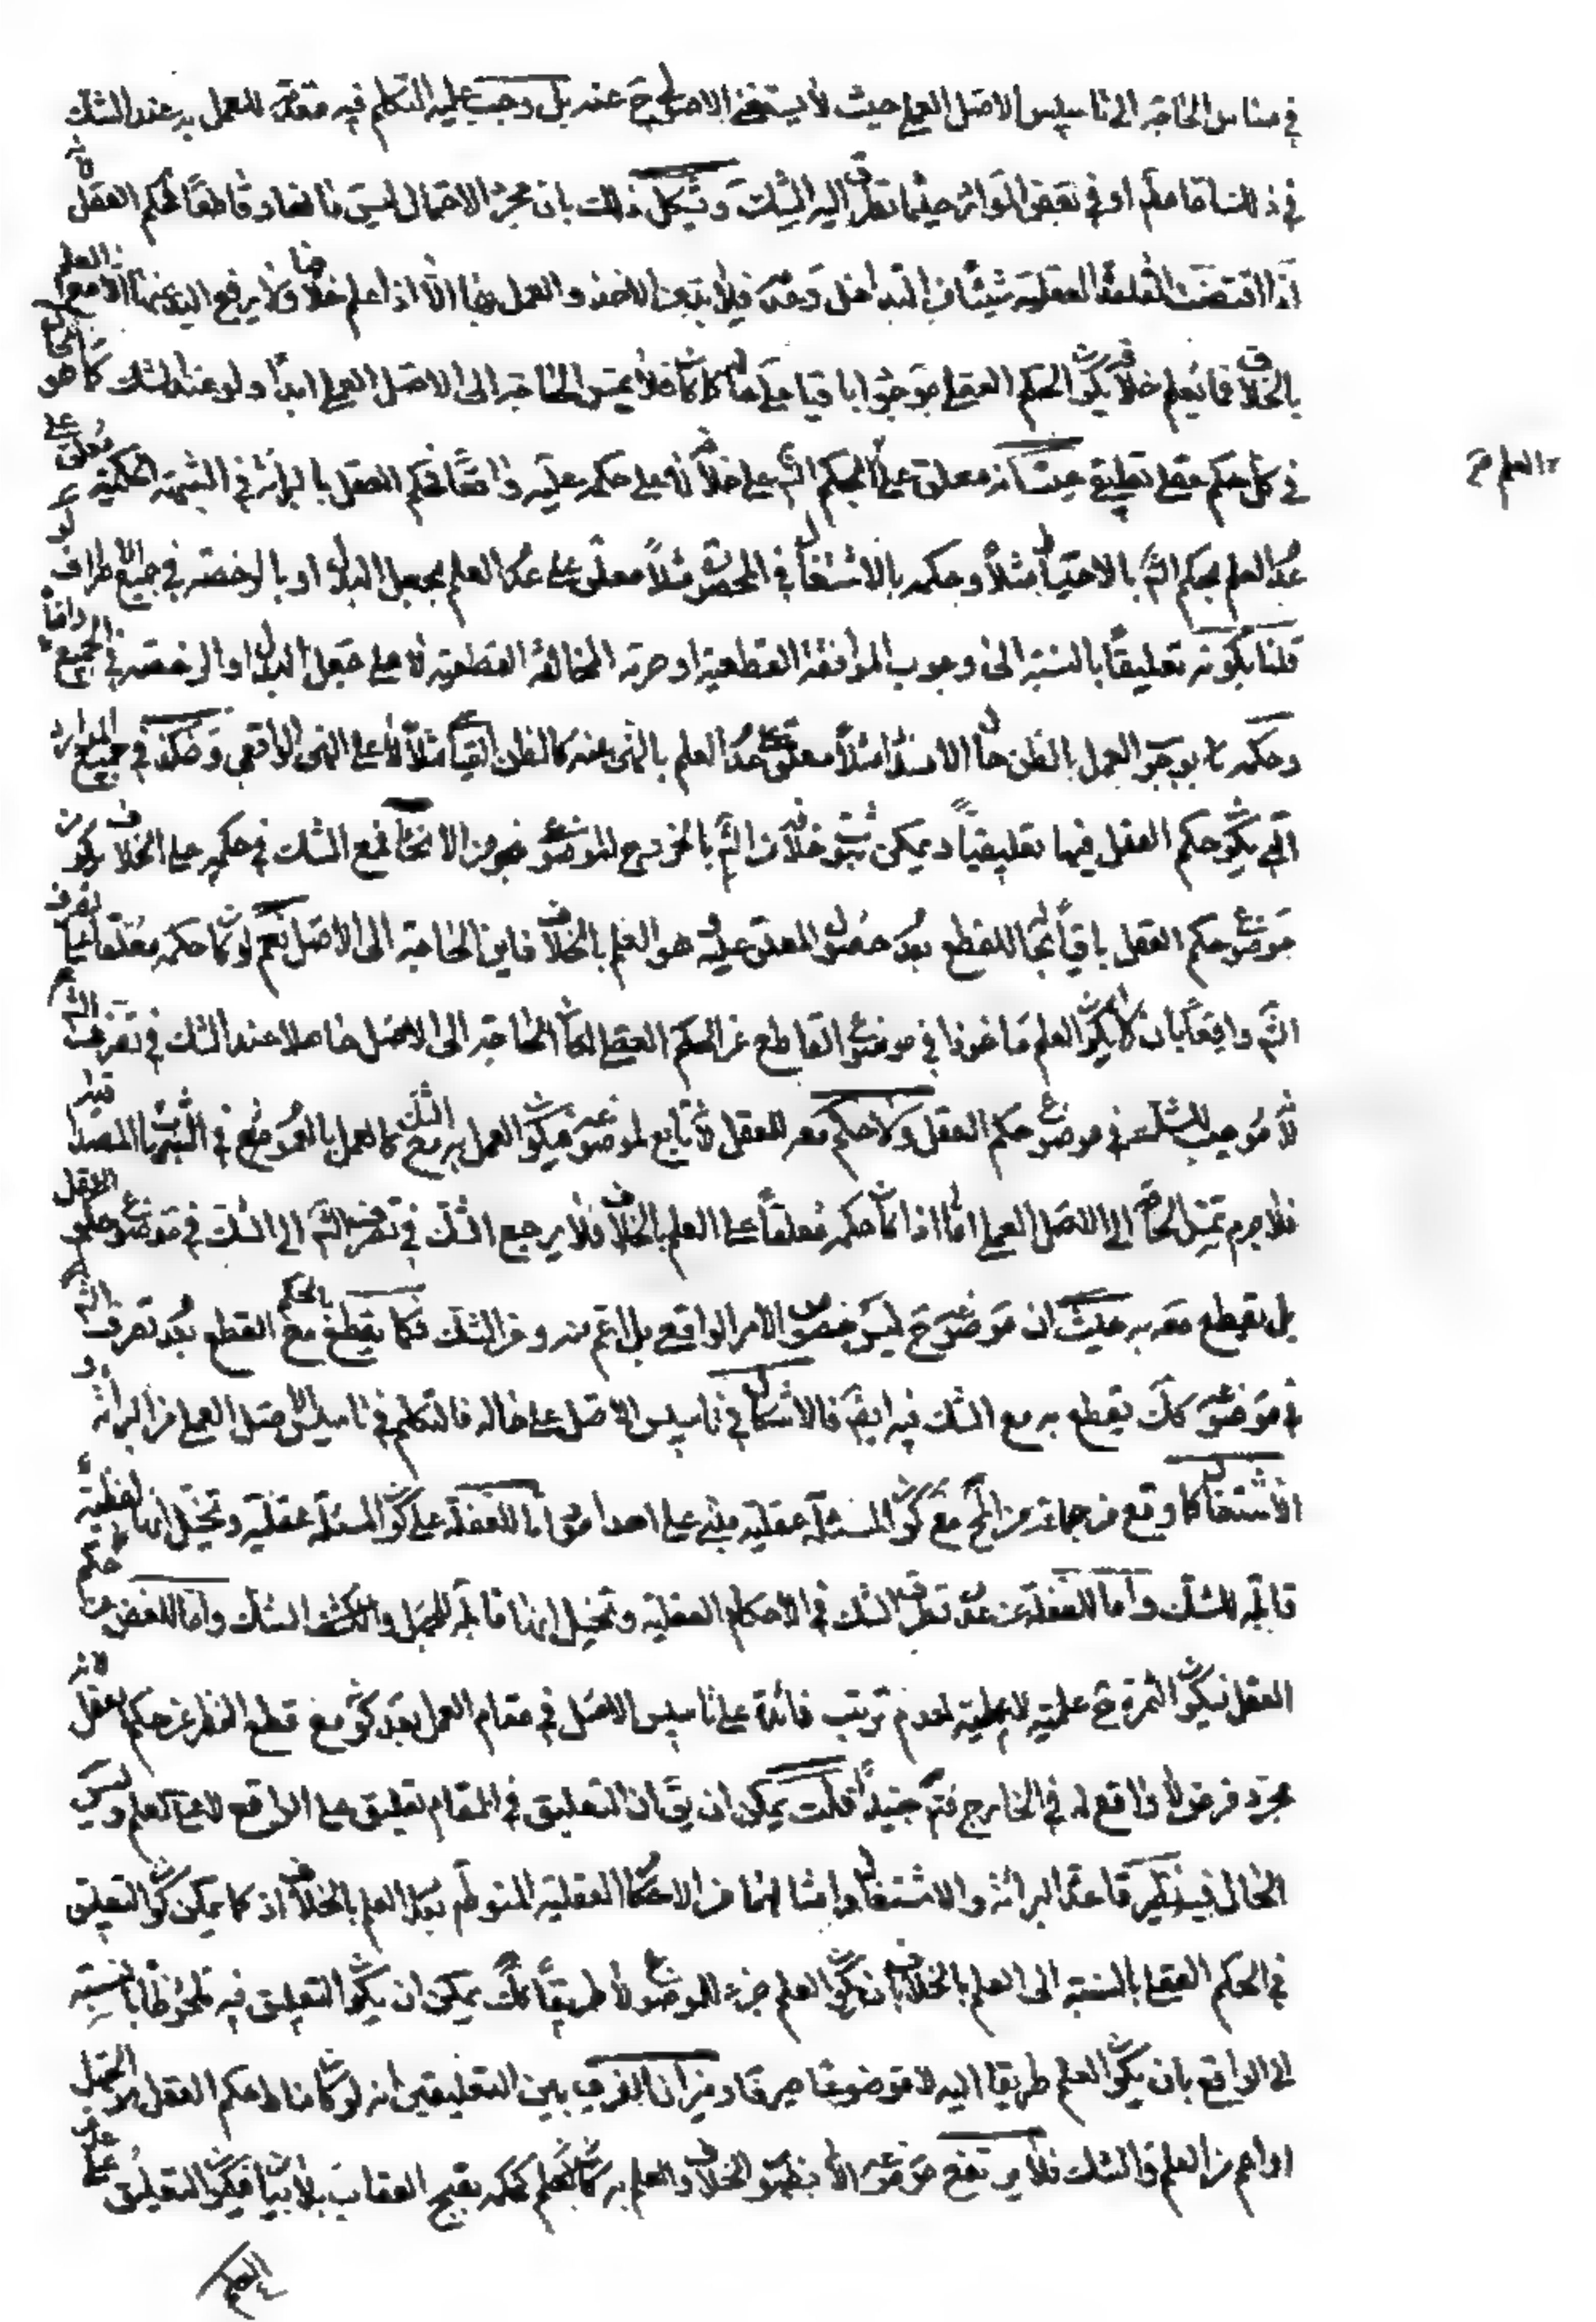 في مساس الحاجة الى تاسيس الاصل العملي حيث لا يستغني الاصولي ح عنه بل وجب عليه التكلم فيه مقدمة للعمل به عند الشك
في ذلك اما مطلقا او في بعض الموارد حيثما تطرق اليه الشك ويشكل ذلك بان مجرد الاحتمال ليس مانعا وقاطعا لحكم العقل لانه
اذا اقتضت القاعدة العقلية شيئا في التداخل وعدمه فلا بد من الاخذ والعمل بها الا اذا علم خلافها ولا يرفع اليد عنها الا مع العلم
بالخلاف فما لم يعلم خلافه يكون الحكم العقلي موجودا باقيا على حاله كما كان فلا يمس الحاجة الى الاصل العملي ابدا ولو عند الشك كما هو الحال
في كل حكم عقلي تعليقي حيث انه معلق على العلم بحكم الشم على خلافه لا على حكمه عليه واقعا فحكم العقل بالبرائة في الشبهة الحكمية معلق على
عدم العلم بحكم الشم بالاحتياط مثلا وحكمه بالاشتغال في المحصورة مثلا معلق على عدم العلم بجعل البدل او بالرخصة في جميع الاطراف لو
قلنا بكونه تعليقا بالنسبة الى وجوب الموافقة القطعية او حرمة المخالفة القطعية لا على جعل البدل او الرخصة في الجميع واقعا
وحكمه بوجوب العمل بالظن حال الانسداد مثلا معلق على عدم العلم بالنهي عنه كالظن القياسي مثلا لا على النهي الواقعي وهكذا في جميع الموارد
التي يكون حكم العقل فيها تعليقيا ويمكن ثبوت خلافه من الشم بالخروج الموضوعي بنحو من الانحاء فمع الشك في حكمه على الخلاف يكون
موضوع حكم العقل باقيا بحاله للقطع بعدم حصول المعلق عليه هو العلم بالخلاف فاين الحاجة الى الاصل نعم لو كان حكمه معلقا على تصرف
الشم واقعا بان لا يكون العلم ماخوذا في موضوع القاطع عن الحكم العقلي لكان الحاجة الى الاصل حاصلا عند الشك في تصرف الشم
لانه موجب للشك في موضوع حكم العقل ولا حكم معه للعقل لانه تابع لموضوعه فيكون العمل به مع الشك كالعمل بالعموم في الشبهة المصداقية
فلا جرم تمس الحاجة الى الاصل العملي اما اذا كان حكمه معلقا على العلم بالخلاف فلا يرجع الشك في تصرف الشم الى الشك في موضوع حكم العقل
بل يقطع معه به حيث ان موضوعه ح ليس خصوص الامر الواقعي بل اعم منه ومن الشك فكما يقطع بالحكم مع القطع بعدم تصرف الشم
في موضوعه كك يقطع به مع الشك فيه ايضا فالاشكال في تاسيس الاصل على حاله فالتكلم في تاسيس الاصل العملي من البرائة او
الاشتغال كما وقع من جماعة من المح مع كون المسئلة عقلية مبني على احد امور اما للغفلة على كون المسئلة عقلية وتخيل انها لفظية
قابلة للشك واما للغفلة عن عدم تطرق الشك في الاحكام العقلية وتخيل انها قابلة للجهل والشك واما للغض عن حكم
العقل فيكون الثمرة ح علمية لا عملية لعدم ترتب فائدة على تاسيس الاصل في مقام العمل بعد كون مع قطع النظر عن حكم العقل لانه
مجرد فرض لا واقع له في الخارج فتم جيدا قلت يمكن ان يق ان التعليق في المقام تعليق على الواقع لا على العلم وليس
الحال فيه نظير قاعدة البرائة والاشتغال وامثالهما من الاحكام العقلية المنوطة بعدم العلم بالخلاف اذ كما يمكن كون التعليق
في الحكم العقلي بالنسبة الى العلم بالخلاف بان يكون العلم جزء للموضوع لا طريقا كك يمكن ان يكون التعليق فيه ملحوظا بالنسبة
الى الواقع بان يكون العلم طريقا اليه لا موضوعا صرفا وميزان الفرق بين التعليقين انه لو كان مناط حكم العقل هو الجهل
او اعم من العلم والشك فلا يرتفع موضوعه الا بظهور الخلاف والعلم به كالعلم كحكمه بقبح العقاب بلا بيان فيكون التعليق على
العلم
العلم ح